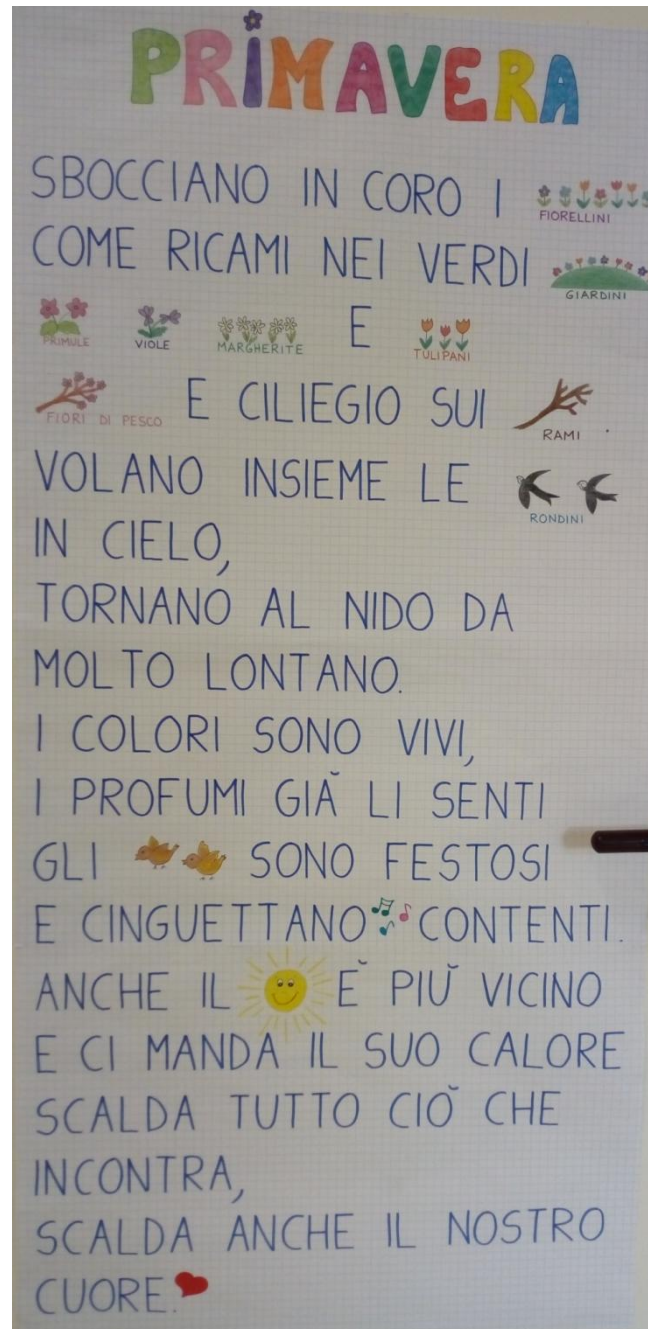 PRIMAVERA
SBOCCIANO IN CORO I FIORELLINI
COME RICAMI NEI VERDI GIARDINI
PRIMULE VIOLE MARGHERITE E TULIPANI
FIORI DI PESCO E CILIEGIO SUI RAMI.
VOLANO INSIEME LE RONDINI
IN CIELO,
TORNANO AL NIDO DA
MOLTO LONTANO.
I COLORI SONO VIVI,
I PROFUMI GIÀ LI SENTI
GLI SONO FESTOSI
E CINGUETTANO CONTENTI.
ANCHE IL È PIÙ VICINO
E CI MANDA IL SUO CALORE
SCALDA TUTTO CIÒ CHE
INCONTRA,
SCALDA ANCHE IL NOSTRO
CUORE.